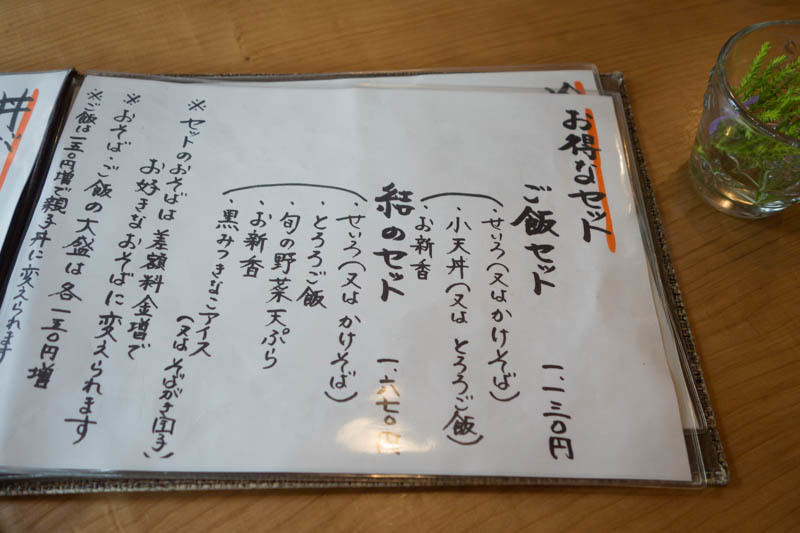 お得なセット
ご飯セット 一、一三〇円
・せいろ（又はかけそば）
・小天丼（又はとろろご飯）
・お新香
結のセット 一、六七〇円
・せいろ（又はかけそば）
・とろろご飯
・旬の野菜天ぷら
・お新香
・黒みつきなこアイス
（又はそばがき団子）
※セットのおそばは差額料金増で
お好きなおそばに変えられます
※おそば・ご飯の大盛は各一五〇円増
※ご飯は一五〇円増で親子丼に変えられます
丼